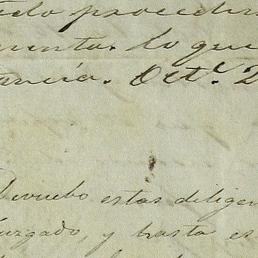 todo procedim
menta. lo que
tancia. Oct.e 2
Devuelvo estas diligen
Juzgado, y hasta es